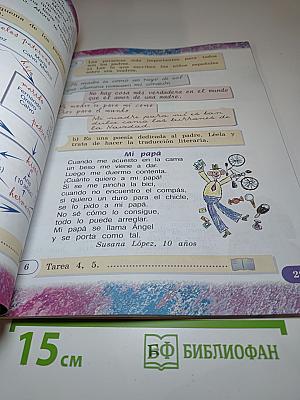 Las personas más importantes para todos
son los padres.
a) Lee lo que escriben los niños españoles
sobre sus madres.
No hay cosa más verdadera en el mundo
que el amor de una madre.
Mi madre para mí es tan
dulce como los turrones de
la Navidad.
b) Es una poesía dedicada al padre. Léela y
trata de hacer la traducción literaria.
Mi papá
Cuando me acuesto en la cama
un beso me viene a dar.
Luego me duermo contenta.
¡Cuánto quiero a mi papá!
Si se me pincha la bici,
cuando no encuentro el compás,
si quiero un duro para el chicle,
se lo pido a mi papá.
No sé cómo lo consigue,
todo lo puede arreglar.
Mi papá se llama Ángel
y se porta como tal.
Susana López, 10 años
6 Tarea 4, 5.
15 см
БФ БИБЛИОФАН